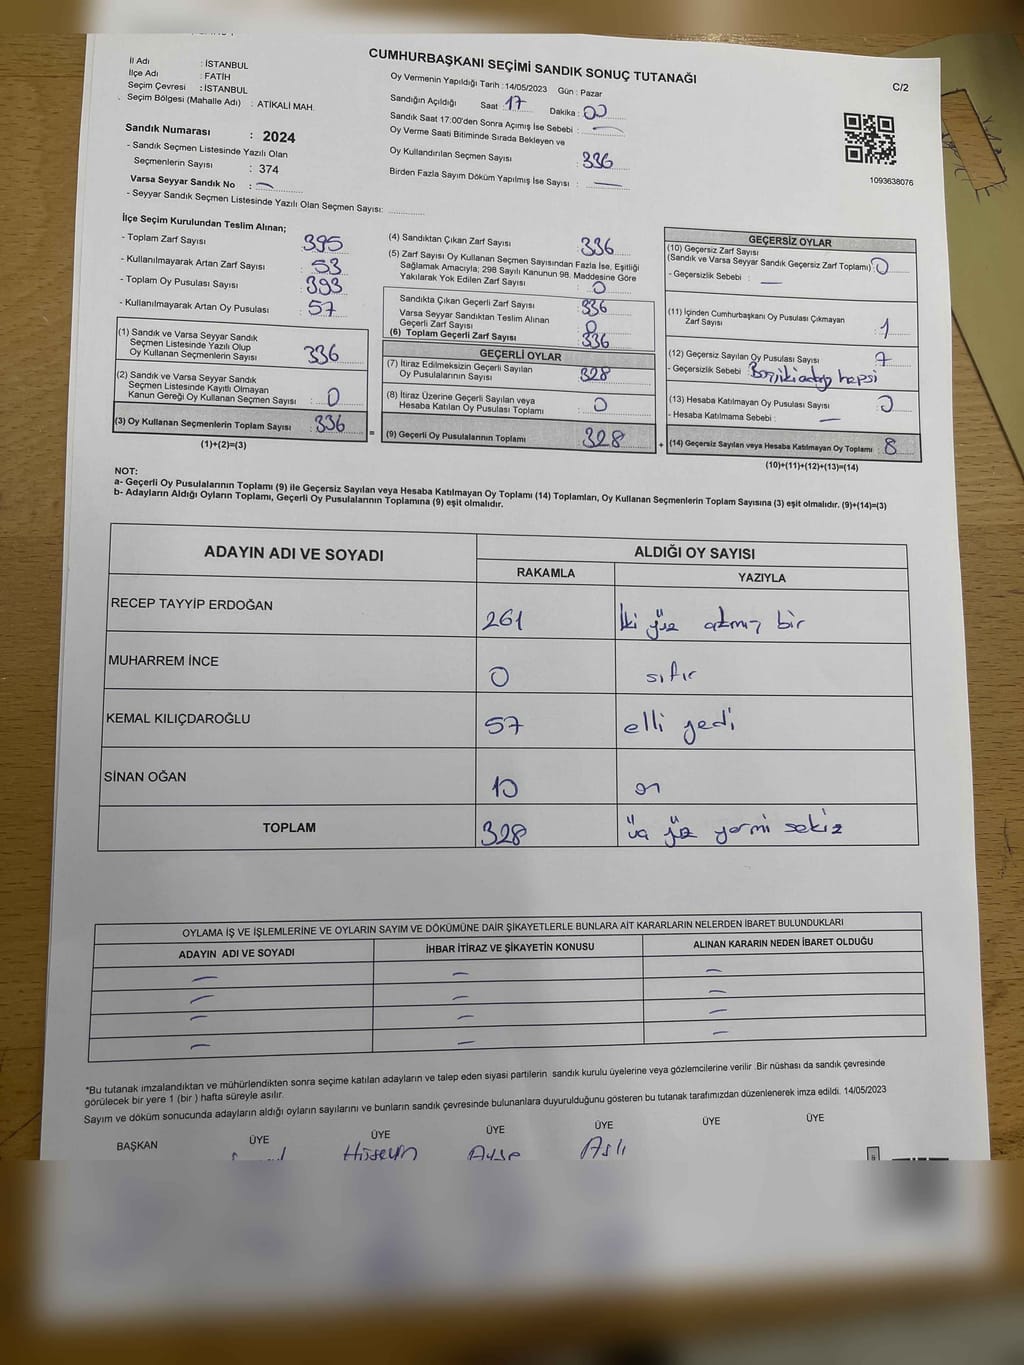 CUMHURBAŞKANI SEÇİMİ SANDIK SONUÇ TUTANAĞI
C/2
İl Adı : İSTANBUL
İlçe Adı : FATİH
Seçim Çevresi : İSTANBUL
Seçim Bölgesi (Mahalle Adı) : ATİKALİ MAH.
Sandık Numarası : 2024
- Sandık Seçmen Listesinde Yazılı Olan
Seçmenlerin Sayısı : 374
Varsa Seyyar Sandık No : —
- Seyyar Sandık Seçmen Listesinde Yazılı Olan Seçmen Sayısı:
Oy Vermenin Yapıldığı Tarih : 14/05/2023 Gün : Pazar
Sandığın Açıldığı Saat : 17 Dakika : 00
Sandık Saat 17:00'den Sonra Açımış İse Sebebi : —
Oy Verme Saati Bitiminde Sırada Bekleyen ve
Oy Kullandırılan Seçmen Sayısı : 336
Birden Fazla Sayım Döküm Yapılmış İse Sayısı : —
1093638076
İlçe Seçim Kurulundan Teslim Alınan;
- Toplam Zarf Sayısı : 395
- Kullanılmayarak Artan Zarf Sayısı : 53
- Toplam Oy Pusulası Sayısı : 393
- Kullanılmayarak Artan Oy Pusulası : 57
(1) Sandık ve Varsa Seyyar Sandık
Seçmen Listesinde Yazılı Olup
Oy Kullanan Seçmenlerin Sayısı : 336
(2) Sandık ve Varsa Seyyar Sandık
Seçmen Listesinde Kayıtlı Olmayan
Kanun Gereği Oy Kullanan Seçmen Sayısı : 0
(3) Oy Kullanan Seçmenlerin Toplam Sayısı : 336
(1)+(2)=(3)
=
(4) Sandıktan Çıkan Zarf Sayısı : 336
(5) Zarf Sayısı Oy Kullanan Seçmen Sayısından Fazla İse, Eşitliği
Sağlamak Amacıyla; 298 Sayılı Kanunun 98. Maddesine Göre
Yakılarak Yok Edilen Zarf Sayısı : 0
Sandıkta Çıkan Geçerli Zarf Sayısı : 336
Varsa Seyyar Sandıktan Teslim Alınan
Geçerli Zarf Sayısı : 0
(6) Toplam Geçerli Zarf Sayısı : 336
GEÇERLİ OYLAR
(7) İtiraz Edilmeksizin Geçerli Sayılan
Oy Pusulalarının Sayısı : 328
(8) İtiraz Üzerine Geçerli Sayılan veya
Hesaba Katılan Oy Pusulası Toplamı : 0
(9) Geçerli Oy Pusulalarının Toplamı : 328
+
GEÇERSİZ OYLAR
(10) Geçersiz Zarf Sayısı
(Sandık ve Varsa Seyyar Sandık Geçersiz Zarf Toplamı) : 0
- Geçersizlik Sebebi : —
(11) İçinden Cumhurbaşkanı Oy Pusulası Çıkmayan
Zarf Sayısı : 1
(12) Geçersiz Sayılan Oy Pusulası Sayısı : 7
- Geçersizlik Sebebi : hepsi
(13) Hesaba Katılmayan Oy Pusulası Sayısı : 0
- Hesaba Katılmama Sebebi : —
(14) Geçersiz Sayılan veya Hesaba Katılmayan Oy Toplamı : 8
(10)+(11)+(12)+(13)=(14)
NOT:
a- Geçerli Oy Pusulalarının Toplamı (9) ile Geçersiz Sayılan veya Hesaba Katılmayan Oy Toplamı (14) Toplamları, Oy Kullanan Seçmenlerin Toplam Sayısına (3) eşit olmalıdır. (9)+(14)=(3)
b- Adayların Aldığı Oyların Toplamı, Geçerli Oy Pusulalarının Toplamına (9) eşit olmalıdır.
ADAYIN ADI VE SOYADI ALDIĞI OY SAYISI
RAKAMLA YAZIYLA
RECEP TAYYİP ERDOĞAN 261 İki yüz atmış bir
MUHARREM İNCE 0 sıfır
KEMAL KILIÇDAROĞLU 57 elli yedi
SİNAN OĞAN 10 on
TOPLAM 328 üç yüz yirmi sekiz
OYLAMA İŞ VE İŞLEMLERİNE VE OYLARIN SAYIM VE DÖKÜMÜNE DAİR ŞİKAYETLERLE BUNLARA AİT KARARLARIN NELERDEN İBARET BULUNDUKLARI
ADAYIN ADI VE SOYADI İHBAR İTİRAZ VE ŞİKAYETİN KONUSU ALINAN KARARIN NEDEN İBARET OLDUĞU
— — —
— — —
— — —
— — —
*Bu tutanak imzalandıktan ve mühürlendikten sonra seçime katılan adayların ve talep eden siyasi partilerin sandık kurulu üyelerine veya gözlemcilerine verilir .Bir nüshası da sandık çevresinde
görülecek bir yere 1 (bir ) hafta süreyle asılır.
Sayım ve döküm sonucunda adayların aldığı oyların sayılarını ve bunların sandık çevresinde bulunanlara duyurulduğunu gösteren bu tutanak tarafımızdan düzenlenerek imza edildi. 14/05/2023
BAŞKAN ÜYE ÜYE ÜYE ÜYE ÜYE ÜYE
Hüseyin Ayşe Aslı